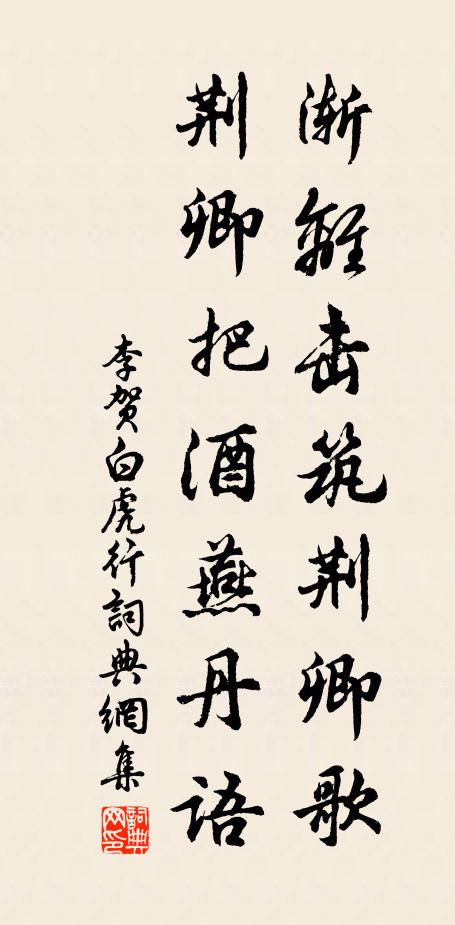 渐離击筑荆卿歌
荆卿把酒燕丹语
李贺白虎行詞典網集
詞典网印